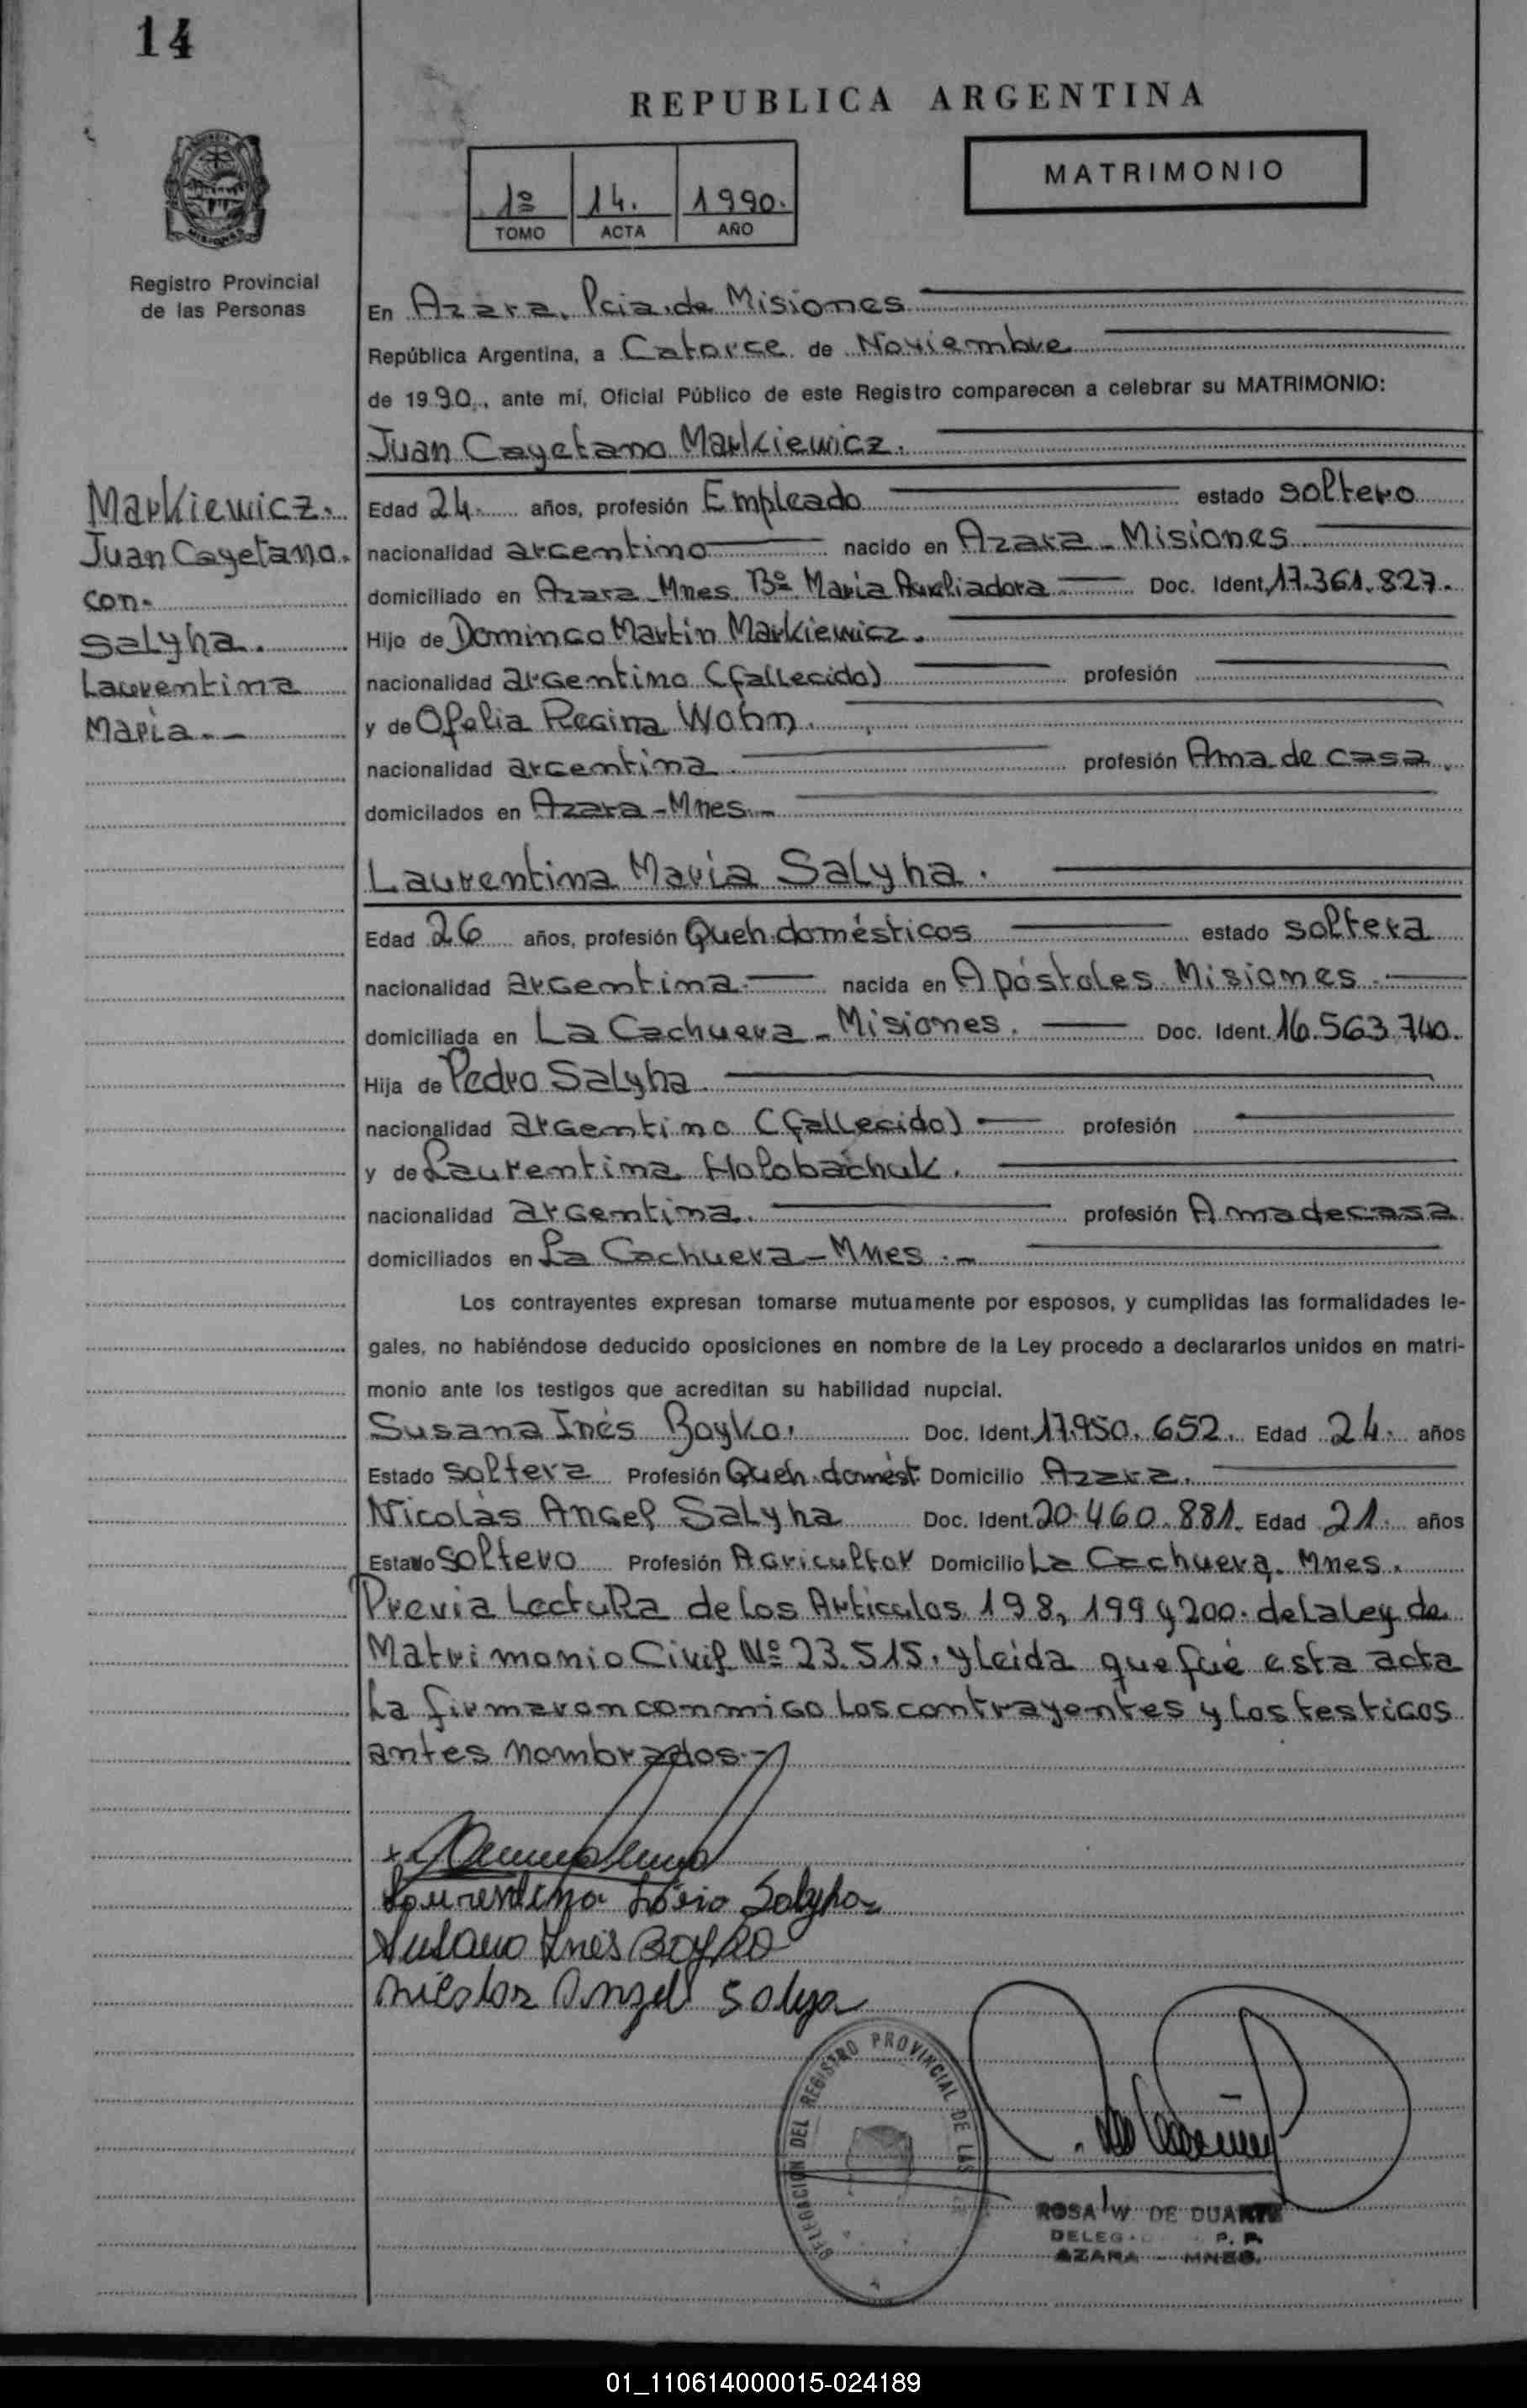 14
REPUBLICA ARGENTINA
MATRIMONIO
1º 14. 1990.
TOMO ACTA AÑO
Registro Provincial
de las Personas
En Azara, Pcia. de Misiones
República Argentina, a Catorce de Noviembre
de 1990, ante mí, Oficial Público de este Registro comparecen a celebrar su MATRIMONIO:
Juan Cayetano Markiewicz.
Markiewicz.
Juan Cayetano.
con.
Salyha.
Laurentina
Maria.-
Edad 24. años, profesión Empleado estado soltero
nacionalidad argentino nacido en Azara - Misiones
domiciliado en Azara - Mnes. Bº Maria Auxliadora Doc. Ident. 17.361.827.
Hijo de Domingo Martin Markiewicz.
nacionalidad argentino (fallecido) profesión
y de Ofelia Regina Wohn.
nacionalidad argentina. profesión Ama de casa.
domicilados en Azara - Mnes.-
Laurentina Maria Salyha.
Edad 26 años, profesión Queh. domésticos estado soltera
nacionalidad argentina. nacida en Apóstoles Misiones.
domiciliada en La Cachuera - Misiones. Doc. Ident. 16.563.740.
Hija de Pedro Salyha
nacionalidad argentino (fallecido) profesión
y de Laurentina Holobachuk.
nacionalidad argentina. profesión Ama de casa
domiciliados en La Cachuera - Mnes.-
Los contrayentes expresan tomarse mutuamente por esposos, y cumplidas las formalidades le-
gales, no habiéndose deducido oposiciones en nombre de la Ley procedo a declararlos unidos en matri-
monio ante los testigos que acreditan su habilidad nupcial.
Susana Inés Boyko. Doc. Ident. 17.950.652. Edad 24. años
Estado soltera Profesión Queh. domést. Domicilio Azara.
Nicolás Angel Salyha Doc. Ident. 20.460.881. Edad 21. años
Estado soltero Profesión Agricultor Domicilio La Cachuera. Mnes.
Previa LectuRa de los Articulos 198, 199 y 200. de la ley de
Matrimonio Civil Nº 23.515. y leida que fué esta acta
la firmaron conmigo los contrayentes y los testigos
antes nombrados.-
Laurentina Maria Salyha
Susana Inés Boyko
Nicolas Angel Salya
DELEGACION DEL REGISTRO PROVINCIAL DE LAS
ROSA W. DE DUARTE
DELEG P. P.
AZARA - MNES.
01_110614000015-024189